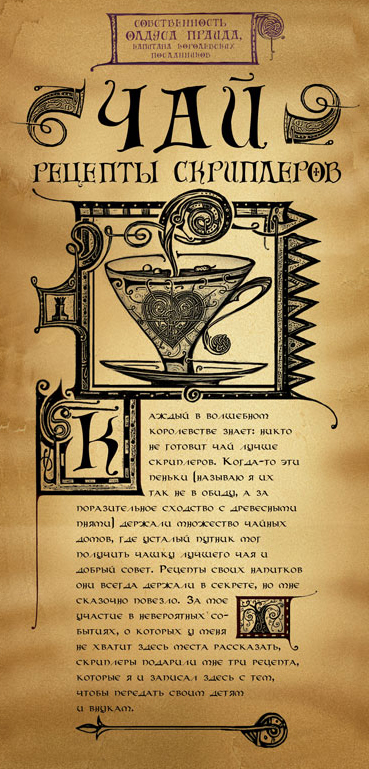 СОБСТВЕННОСТЬ
ОЛДУСА ПРАЙДА,
КАПИТАНА КОРОЛЕВСКИХ
ПОСЛАННИКОВ
ЧАЙ
РЕЦЕПТЫ СКРИПЛЕРОВ
КАЖДЫЙ В ВОЛШЕБНОМ
КОРОЛЕВСТВЕ ЗНАЕТ: НИКТО
НЕ ГОТОВИТ ЧАЙ ЛУЧШЕ
СКРИПЛЕРОВ. КОГДА-ТО ЭТИ
ПЕНЬКИ (НАЗЫВАЮ Я ИХ
ТАК НЕ В ОБИДУ, А ЗА
ПОРАЗИТЕЛЬНОЕ СХОДСТВО С ДРЕВЕСНЫМИ
ПНЯМИ) ДЕРЖАЛИ МНОЖЕСТВО ЧАЙНЫХ
ДОМОВ, ГДЕ УСТАЛЫЙ ПУТНИК МОГ
ПОЛУЧИТЬ ЧАШКУ ЛУЧШЕГО ЧАЯ И
ДОБРЫЙ СОВЕТ. РЕЦЕПТЫ СВОИХ НАПИТКОВ
ОНИ ВСЕГДА ДЕРЖАЛИ В СЕКРЕТЕ, НО МНЕ
СКАЗОЧНО ПОВЕЗЛО. ЗА МОЕ
УЧАСТИЕ В НЕВЕРОЯТНЫХ СО-
БЫТИЯХ, О КОТОРЫХ У МЕНЯ
НЕ ХВАТИТ ЗДЕСЬ МЕСТА РАССКАЗАТЬ,
СКРИПЛЕРЫ ПОДАРИЛИ МНЕ ТРИ РЕЦЕПТА,
КОТОРЫЕ Я И ЗАПИСАЛ ЗДЕСЬ С ТЕМ,
ЧТОБЫ ПЕРЕДАТЬ СВОИМ ДЕТЯМ
И ВНУКАМ.